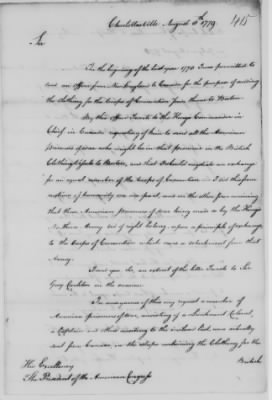 Charlottesville August 6th 1779
415
Sir
In the beginning of the last year 1778 I was permitted to
send an officer from New England to Canada for the purpose of sending
the Clothing for the Troops of Convention from thence to Boston.
By this officer I wrote to the Kings Commander in
Chief in Canada requesting of him to send all the American
Prisoners of war who might be in that province in the British
Clothing Ships to Boston, and that I should negotiate an exchange
for an equal number of the Troops of Convention – I did this from
motives of humanity on one part, and on the other from considering
that those American Prisoners of war being made so by the Kings
Northern Army did of right belong upon a principle of exchange
to the Troops of Convention which were a detachment from that
Army.
I send you Sir an extract of the letter I wrote to Sir
Guy Carleton on the occasion.
In consequence of this my request a number of
American prisoners of war, consisting of a Lieutenant Colonel,
a Captain and others amounting to the inclosed list, were actually
sent from Canada in the Ships containing the Clothing for the
British
His Excellency
The President of the American Congress